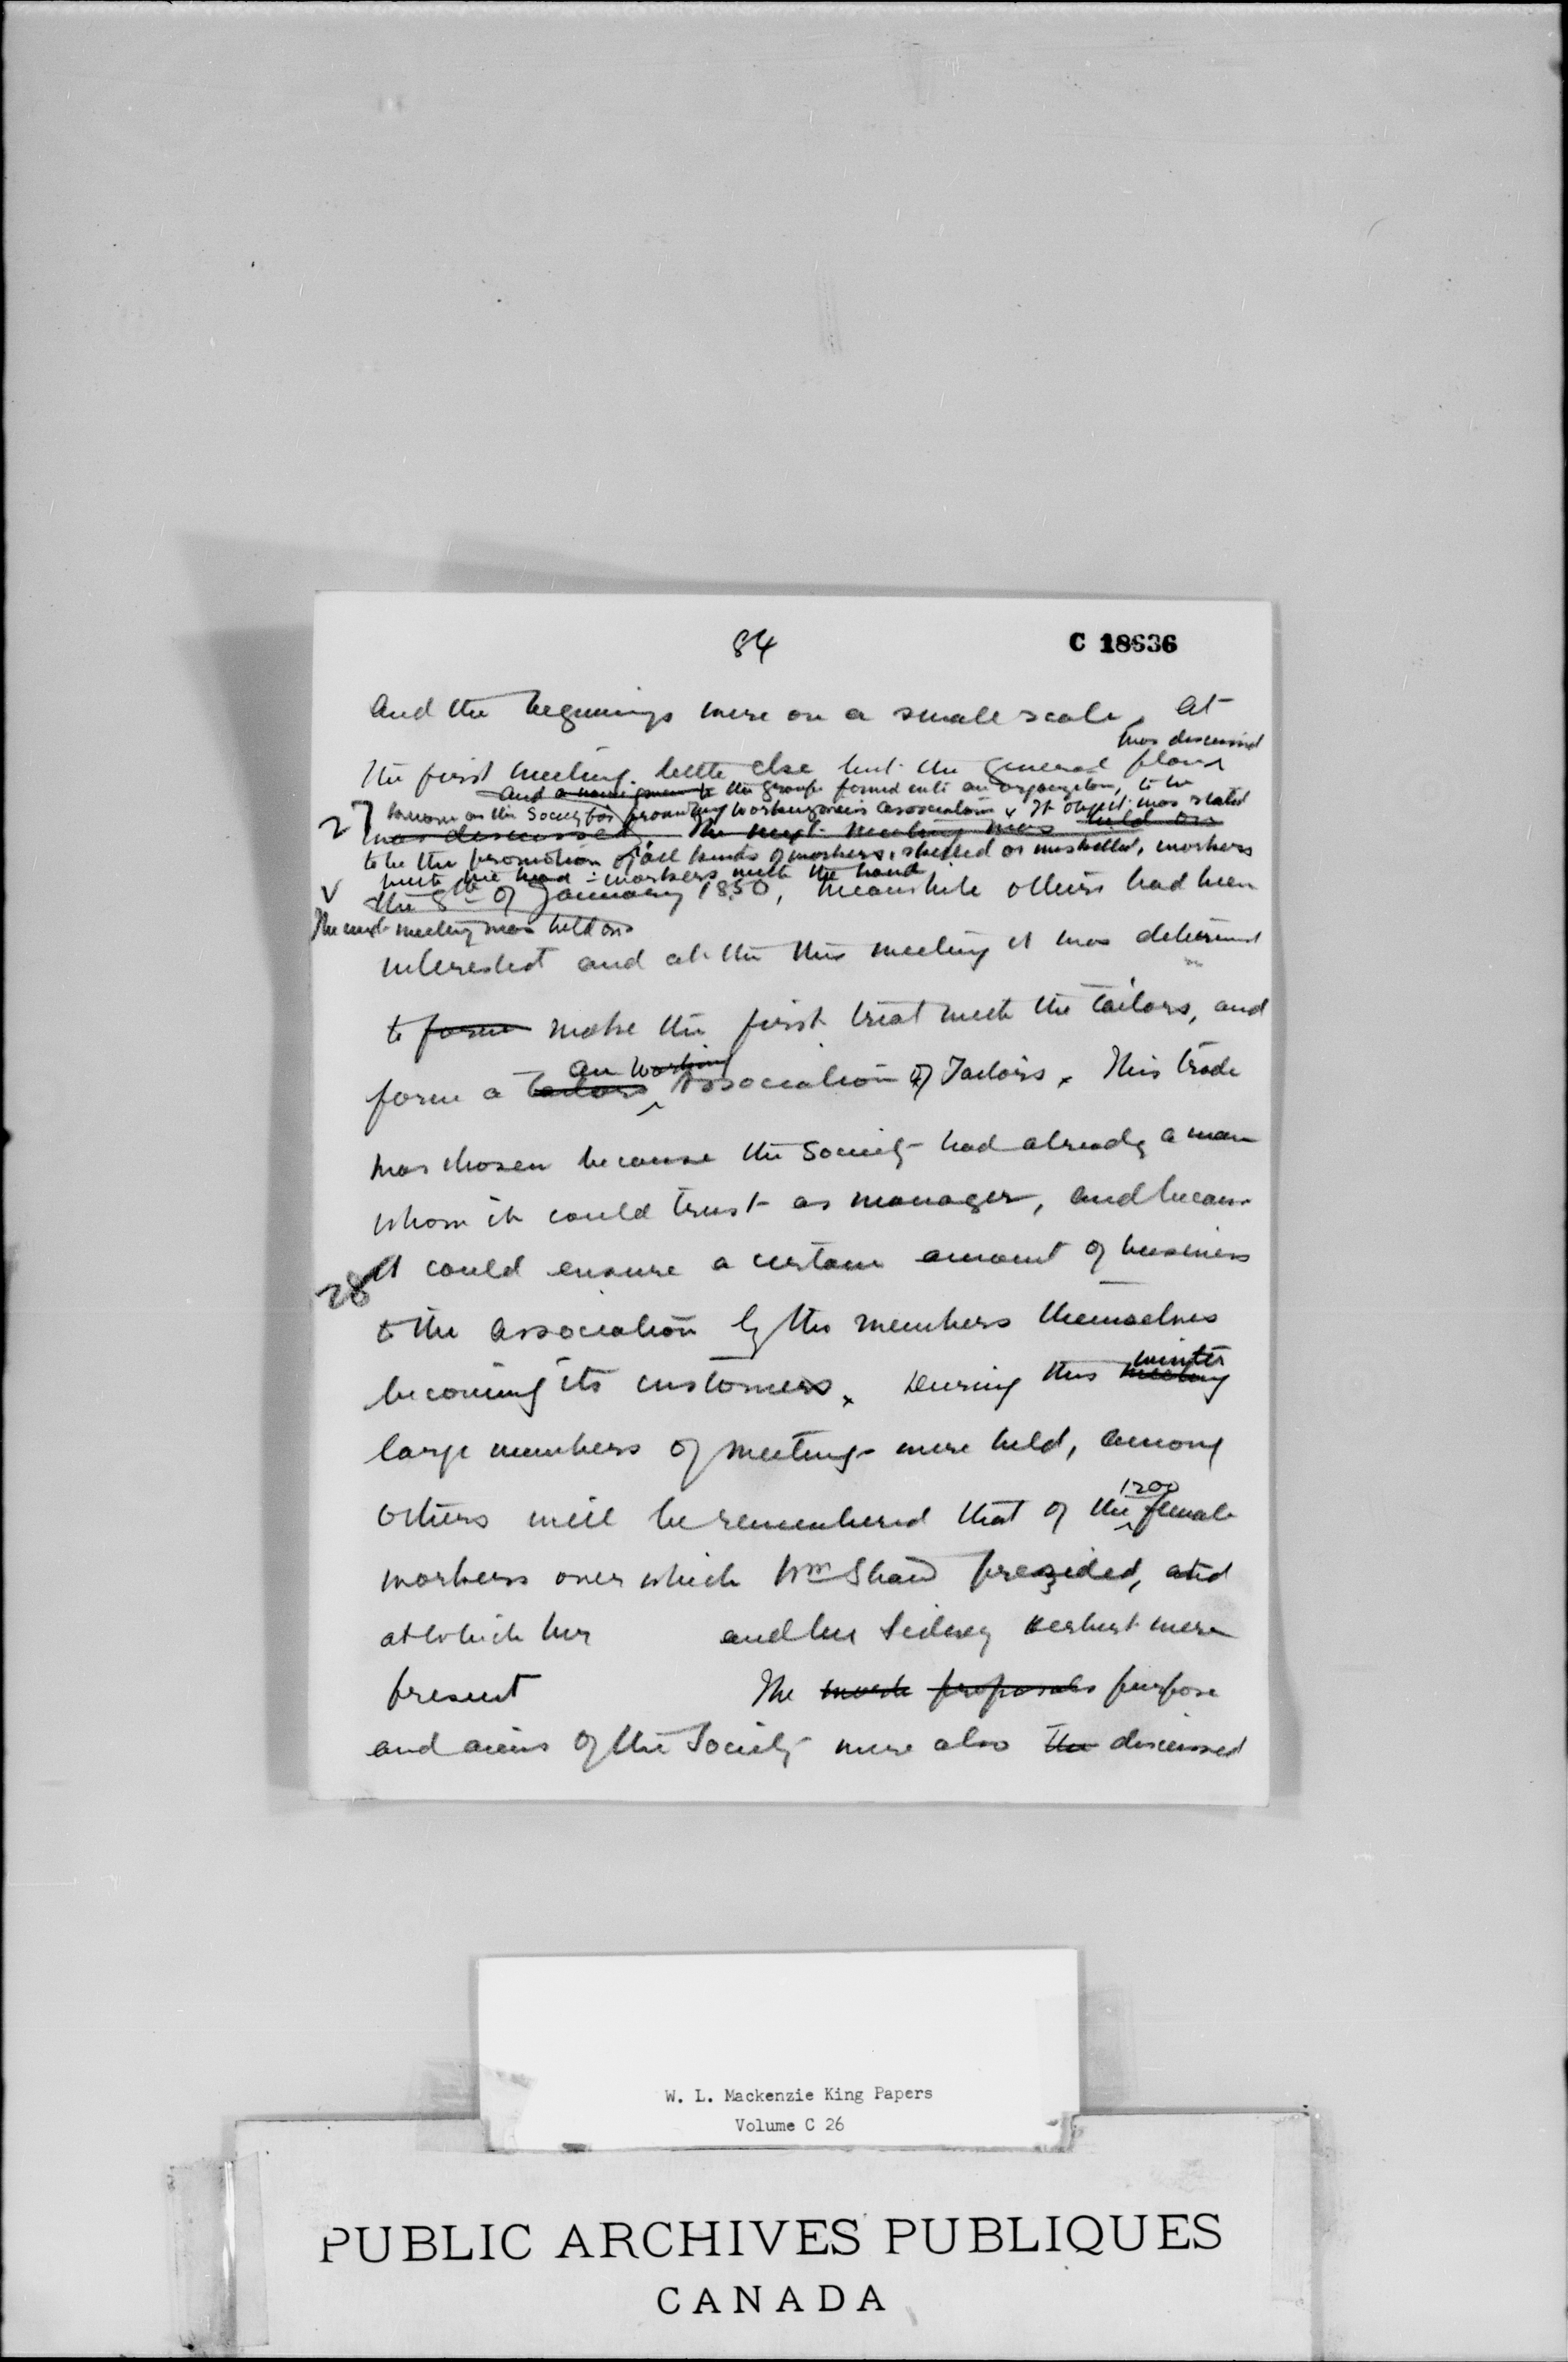 84
C 18636
and the beginnings were on a small scale, at
was discussed
the first meeting little else but the general plan
and a name given to the group formed into an organization, to be
27 known as the Society for promoting Workingmen's Associations. Its object was stated
was discussed. The next meeting was held on
to be the promotion of all kinds of workers, skilled or unskilled, workers
with the head - workers with the hand
V the 8th of January 1850, meanwhile others had been
The next meeting was held on
interested and at the this meeting it was determined
to form make the first treat with the tailors, and
an Working
form a Tailors Association of Tailors. This trade
was chosen because the Society had already a man
whom it could trust as manager, and because
28 it could ensure a certain amount of business
to the association by the members themselves
winter
becoming its customers. During this meeting
large numbers of meetings were held, among
1200
others will be remembered that of the female
workers over which Wm Shaw presided, and
at which her and her Sidney Herbert were
present The proposals purpose
and aims of the Society were also the discussed
W. L. Mackenzie King Papers
Volume C 26
PUBLIC ARCHIVES PUBLIQUES
CANADA